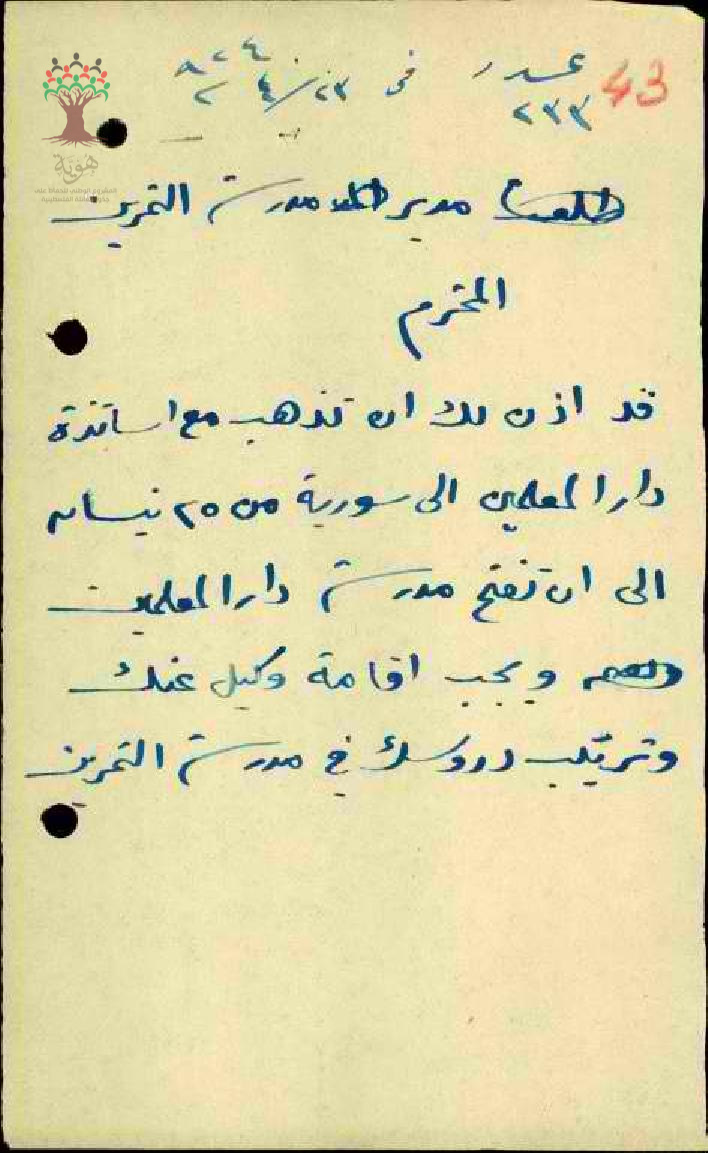 43
عدد ٢٣٣ في ٢٣/٤
مدير مدرسة التمرين
المحترم
قد اذن لك ان تذهب مع اساتذة
دار المعلمين الى سورية من ٢٥ نيسان
الى ان تفتح مدرسة دار المعلمين
ويجب اقامة وكيل عنك
وترتيب دروسك في مدرسة التمرين
هوية